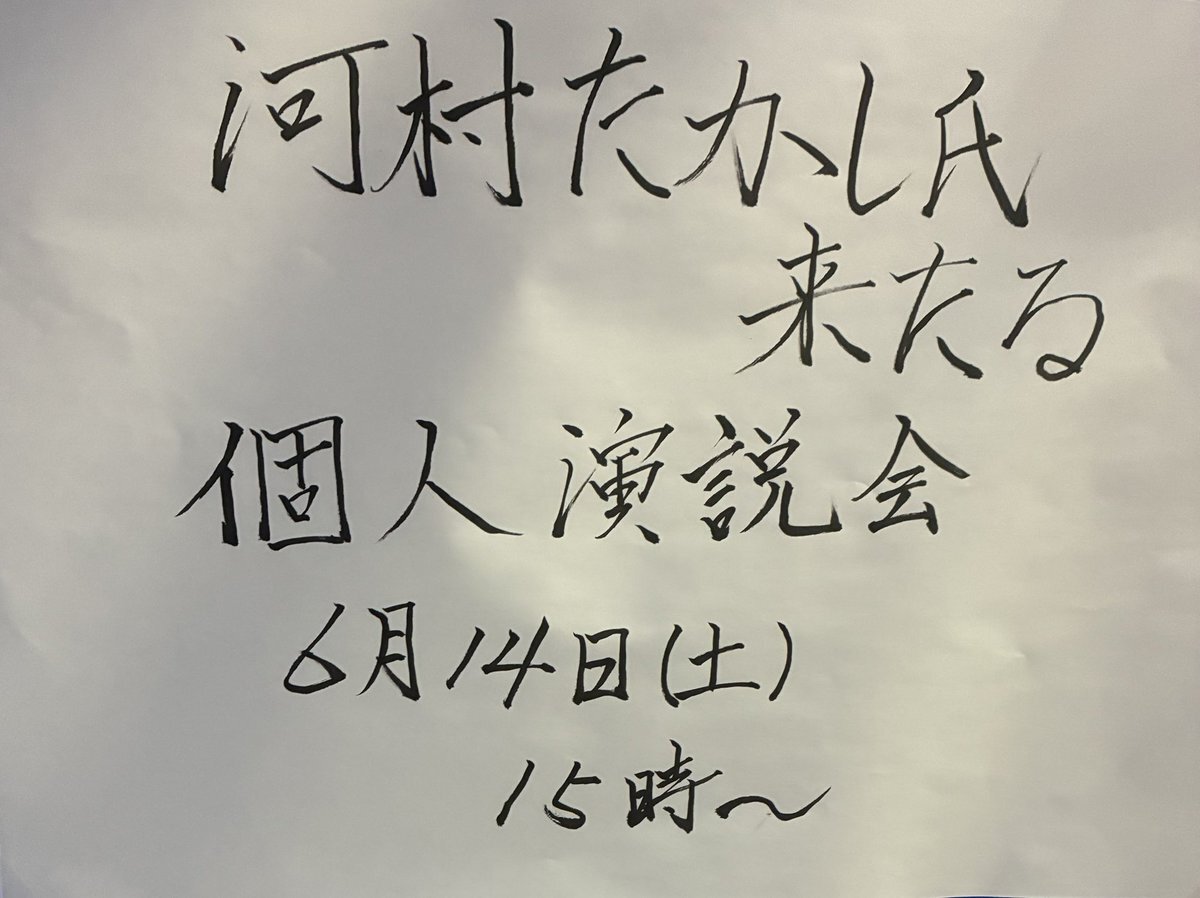 河村たかし氏
来たる
個人演説会
6月14日(土)
15時～